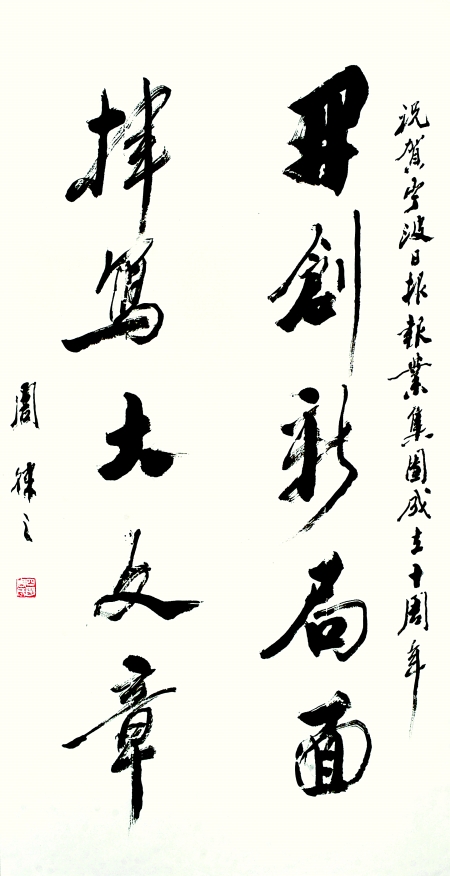 祝賀宁波日報報業集團成立十周年
開創新局面
揮寫大文章
周律之